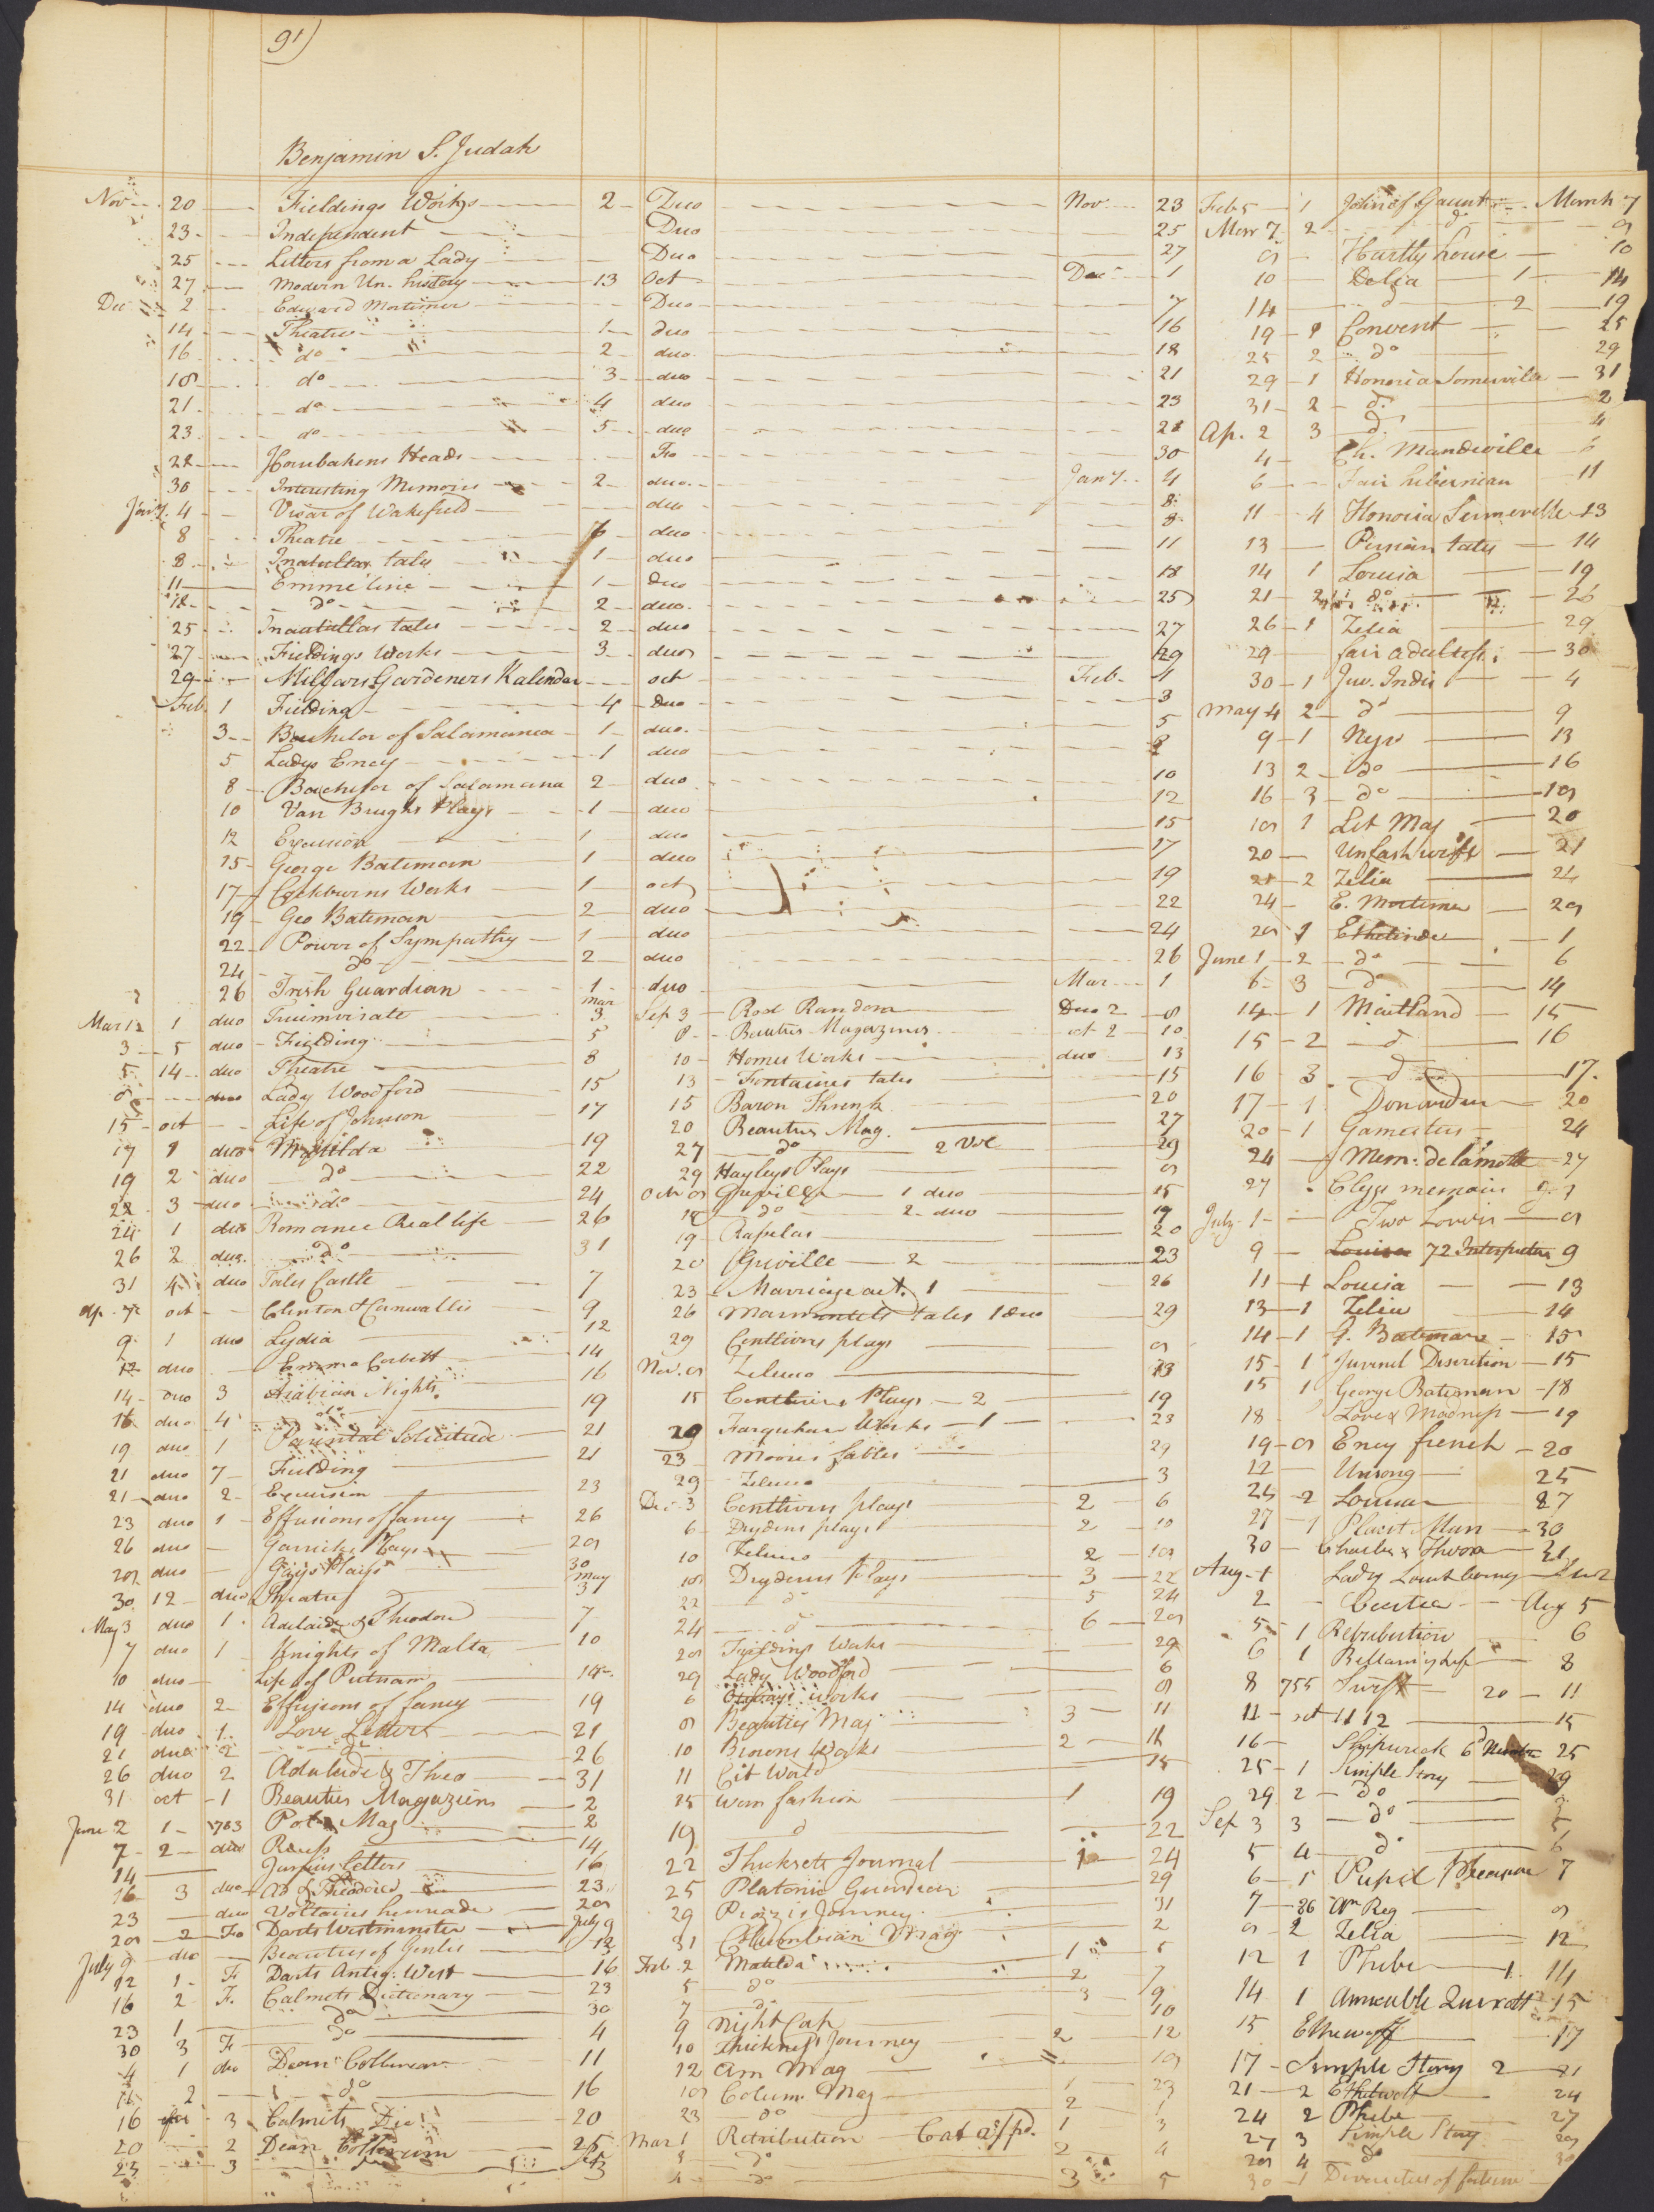 91)
Benjamin S. Judah
Nov 20 Fieldings Works 2 Duo Nov 23
23 Independent Duo 25
25 Letters from a Lady Duo 27
27 Modern Un. history 13 Oct Dec 1
Dec 2 Edward Mortimer Duo 7
14 Theatre 1 duo 16
16 do 2 duo 18
18 do 3 duo 21
21 do 4 duo 23
23 do 5 duo 28
28 Houbakens Heads Fo 30
30 Interesting Memoirs 2 duo Jany 4
Jany 4 Vicar of Wakefield duo 8
8 Theatre 6 duo 8
8 Inatullas tales 1 duo 11
11 Emmeline 1 Duo 18
18 do 2 duo 25
25 Inatullas tales 2 duo 27
27 Fieldings Works 3 duo 29
29 Millars Gardeners Kalendar oct Feb 1
Feb 1 Fielding 4 Duo 3
3 Bachelor of Salamanca 1 duo 5
5 Ladys Ency 1 duo 8
8 Bachelor of Salamana 2 duo 10
10 Van Brughs Plays 1 duo 12
12 Excursion 1 duo 15
15 George Bateman 1 duo 17
17 Cockburns Works 1 oct 19
19 Geo Bateman 2 duo 22
22 Power of Sympathy 1 duo 24
24 do 2 duo 26
26 Irish Guardian 1 duo Mar 1
Mar 1 1 duo Triumvirate Mar 3
3 5 duo Fielding 5
5 14 duo Theatre 8
8 duo Lady Woodford 15
15 oct Life of Johnson 17
17 1 duo Matilda 19
19 2 duo do 22
22 3 duo do 24
24 1 duo Romance Real life 26
26 2 duo do 31
31 4 duo Tales Castle 7
Ap. 7 oct Clinton & Cornwallis 9
9 1 duo Lydia 12
12 duo Emma Corbett 14
14 duo 3 Arabian Nights 16
16 duo 4 do 19
19 duo 1 Parental Solicitude 21
21 duo 7 Fielding 21
21 duo 2 Excursion 23
23 duo 1 Effusions of fancy 26
26 duo Garricks Plays 28
28 duo Gays Plays 30
30 12 duo Theatre May 3
May 3 duo 1 Adelaide & Theodore 7
7 duo 1 Knights of Malta 10
10 duo Life of Putnam 14
14 duo 2 Effusions of fancy 19
19 duo 1 Love Letters 21
21 duo 2 do 26
26 duo 2 Adelaide & Theo 31
31 oct 1 Beauties Magazines 2
June 2 1 1783 Pol. Mag
7 2 duo 14
14 Junius letters 16
16 3 duo Ad & Theodore 23
23 duo Voltaires henriade 28
28 2 Fo Darts Westminster July 9
July 9 duo Beauties of 12
12 1 F Darts Antiq. West 16
16 2 F. Calmets Dictionary 23
23 1 do 30
30 3 F do 4
4 1 duo Dean Collerain 11
11 2 do 16
16 3 Calmets Dic 20
20 2 Dean Colleraine 25
25 3 do
Sep 3 Rod Random Duo 2 8
8 Beauties Magazines oct 2 10
10 Homes Works duo 13
13 Fontaines tales 15
15 Baron Threnk 20
20 Beauties Mag. 27
27 do 2 Vol 29
29 Hayleys Plays 8
Octr 8 Greville 1 duo 15
15 do 2 duo 19
19 Rabelas 20
20 Greville 2 23
23 Marriage act. 1 26
26 Marmontels tales 1 duo 29
29 Centlivres plays 8
Nov. 8 Zeluco 13
15 Centlivres Plays 2 19
20 Farquhars Works 1 23
23 Moores fables 29
29 Zeluco 3
Dec 3 Centlivres plays 2 6
6 Drydens plays 2 10
10 Zeluco 2 18
18 Drydens Plays 3 22
22 do 5 24
24 do 6 28
28 Fieldings Works 29
29 Lady Woodford 6
6 Otways works 8
8 Beauties Mag 3 11
10 Browns Works 2 11
11 Cit World 15
15 Worn fashion 1 19
19 do 22
22 Thicknets Journal 1 24
25 Platonic Guardian 29
29 Piozzis Journey 31
31 Columbian Mag 2
Feb. 2 Matilda 1 5
5 do 2 7
7 do 3 9
9 Night Cap 10
10 Thickness Journey 2 12
12 Am Mag 18
18 Colum Mag 1 23
23 do 2 1
Mar 1 Retribution Cat 1 3
3 do 2 4
4 do 3 5
Feb 5 1 John of Gaunt March 7
Mar 7 2 do 8
8 Hartly house 10
10 Delia 1 14
14 do 2 19
19 1 Convent 25
25 2 do 29
29 1 Honoria Somerville 31
31 2 do 2
Ap. 2 3 do 4
4 Ch. Mandeville 6
6 Fair hibernian 11
11 4 Honoria Somerville 13
13 Persian tales 14
14 1 Louisa 19
21 2 do 26
26 1 Zelia 29
29 fair adultress 30
30 1 Juv. Indis 4
May 4 2 do 9
9 1 13
13 2 do 16
16 3 do 18
18 1 Lit Mag 20
20 Unfash wife 21
21 2 Zelia 24
24 E. Mortimer 28
28 1 Ethelinde 1
June 1 2 do 6
6 3 do 14
14 1 Maitland 15
15 2 do 16
16 3 do 17
17 1 20
20 1 Gamesters 24
24 Mem: de lamotte 27
27 memoirs 1
July 1 Two Lovers 8
9 Louisa 72 Interpreter 9
11 1 Louisa 13
13 1 Zelia 14
14 1 G. Bateman 15
15 1 Juvenil Discretion 15
15 1 George Bateman 18
18 Love & Madness 19
19 8 Ency french 20
22 25
25 2 Louisa 27
27 1 Placid Man 30
30 Charles &
Aug 1 Lady
2 Aug 5
5 1 Retribution 6
6 1 Bellamys Life 8
8 755 Swift 20 11
11 oct 11 12 15
16 Shipwreck 25
25 1 Simple Story 29
29 2 do
Sep 3 3 do 5
5 4 do 6
6 5 Pupil Pleasure 7
7 86 An Reg 8
8 2 Zelia 12
12 1 Phebe 1 14
14 1 Amicable Quixott 15
15 Ethelwolf 17
17 Simple Story 2 21
21 2 Ethelwolf 24
24 2 Phebe 27
27 3 Simple Story 28
28 4 do 30
30 1 of fortune